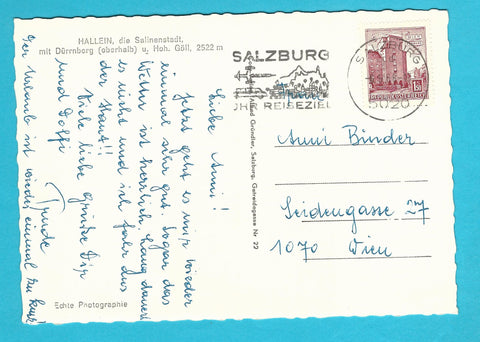 HALLEIN, die Salinenstadt,
mit Dürrnberg (oberhalb) u. Hoh. Göll, 2522 m
Liebe Anni!
Jetzt geht es mir wieder
einmal sehr gut. Sogar das
Wetter ist herrlich. Lang dauert
es nicht und ich fahr aus
der Haut!!
Viele liebe Grüße Dir
und Dolfi
Trude
Der Urlaub ist wieder einmal zu kurz!
Echte Photographie
Gründler, Salzburg, Getreidegasse Nr. 22
SALZBURG
IHR REISEZIEL
SALZBURG
5020
REPUBLIK ÖSTERREICH
Anni Binder
Seidengasse 27
1070 Wien